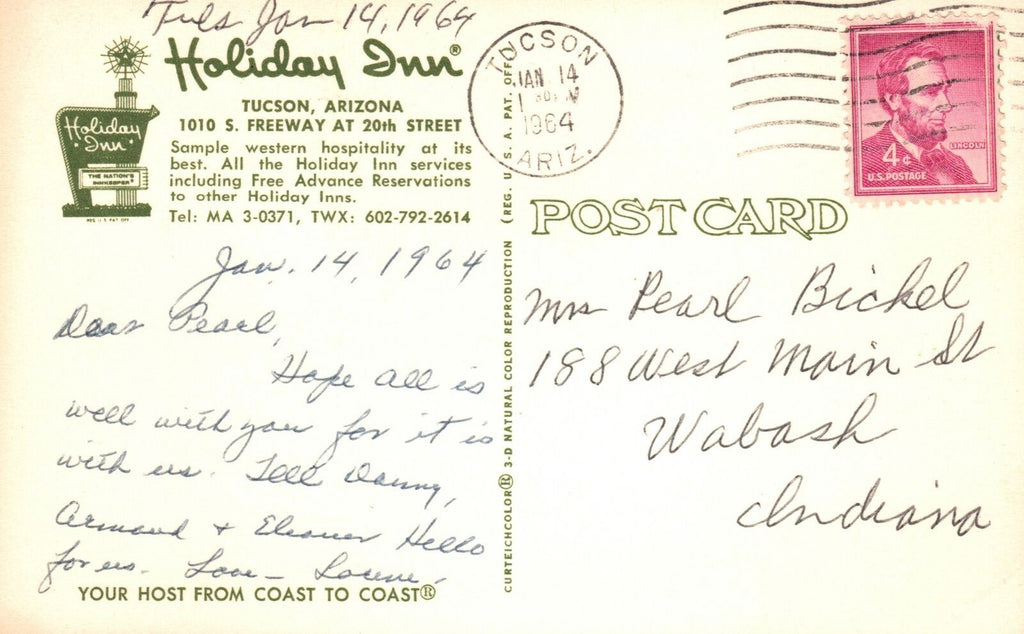 Tues Jan 14, 1964
Holiday Inn®
TUCSON, ARIZONA
1010 S. FREEWAY AT 20th STREET
Sample western hospitality at its
best. All the Holiday Inn services
including Free Advance Reservations
to other Holiday Inns.
Tel: MA 3-0371, TWX: 602-792-2614
Holiday
Inn
THE NATION'S
INNKEEPER
REG. U.S. PAT. OFF.
Jan. 14, 1964
Dear Pearl,
Hope all is
well with you for it is
with us. Tell Danny,
Armand + Eleanor Hello
for us. Love -
YOUR HOST FROM COAST TO COAST®
CURTEICHCOLOR® 3-D NATURAL COLOR REPRODUCTION (REG. U. S. A. PAT. OFF.
TUCSON
JAN 14
1964
ARIZ.
LINCOLN
4¢
U.S. POSTAGE
POST CARD
Mrs Pearl Bickel
188 West Main St
Wabash
Indiana